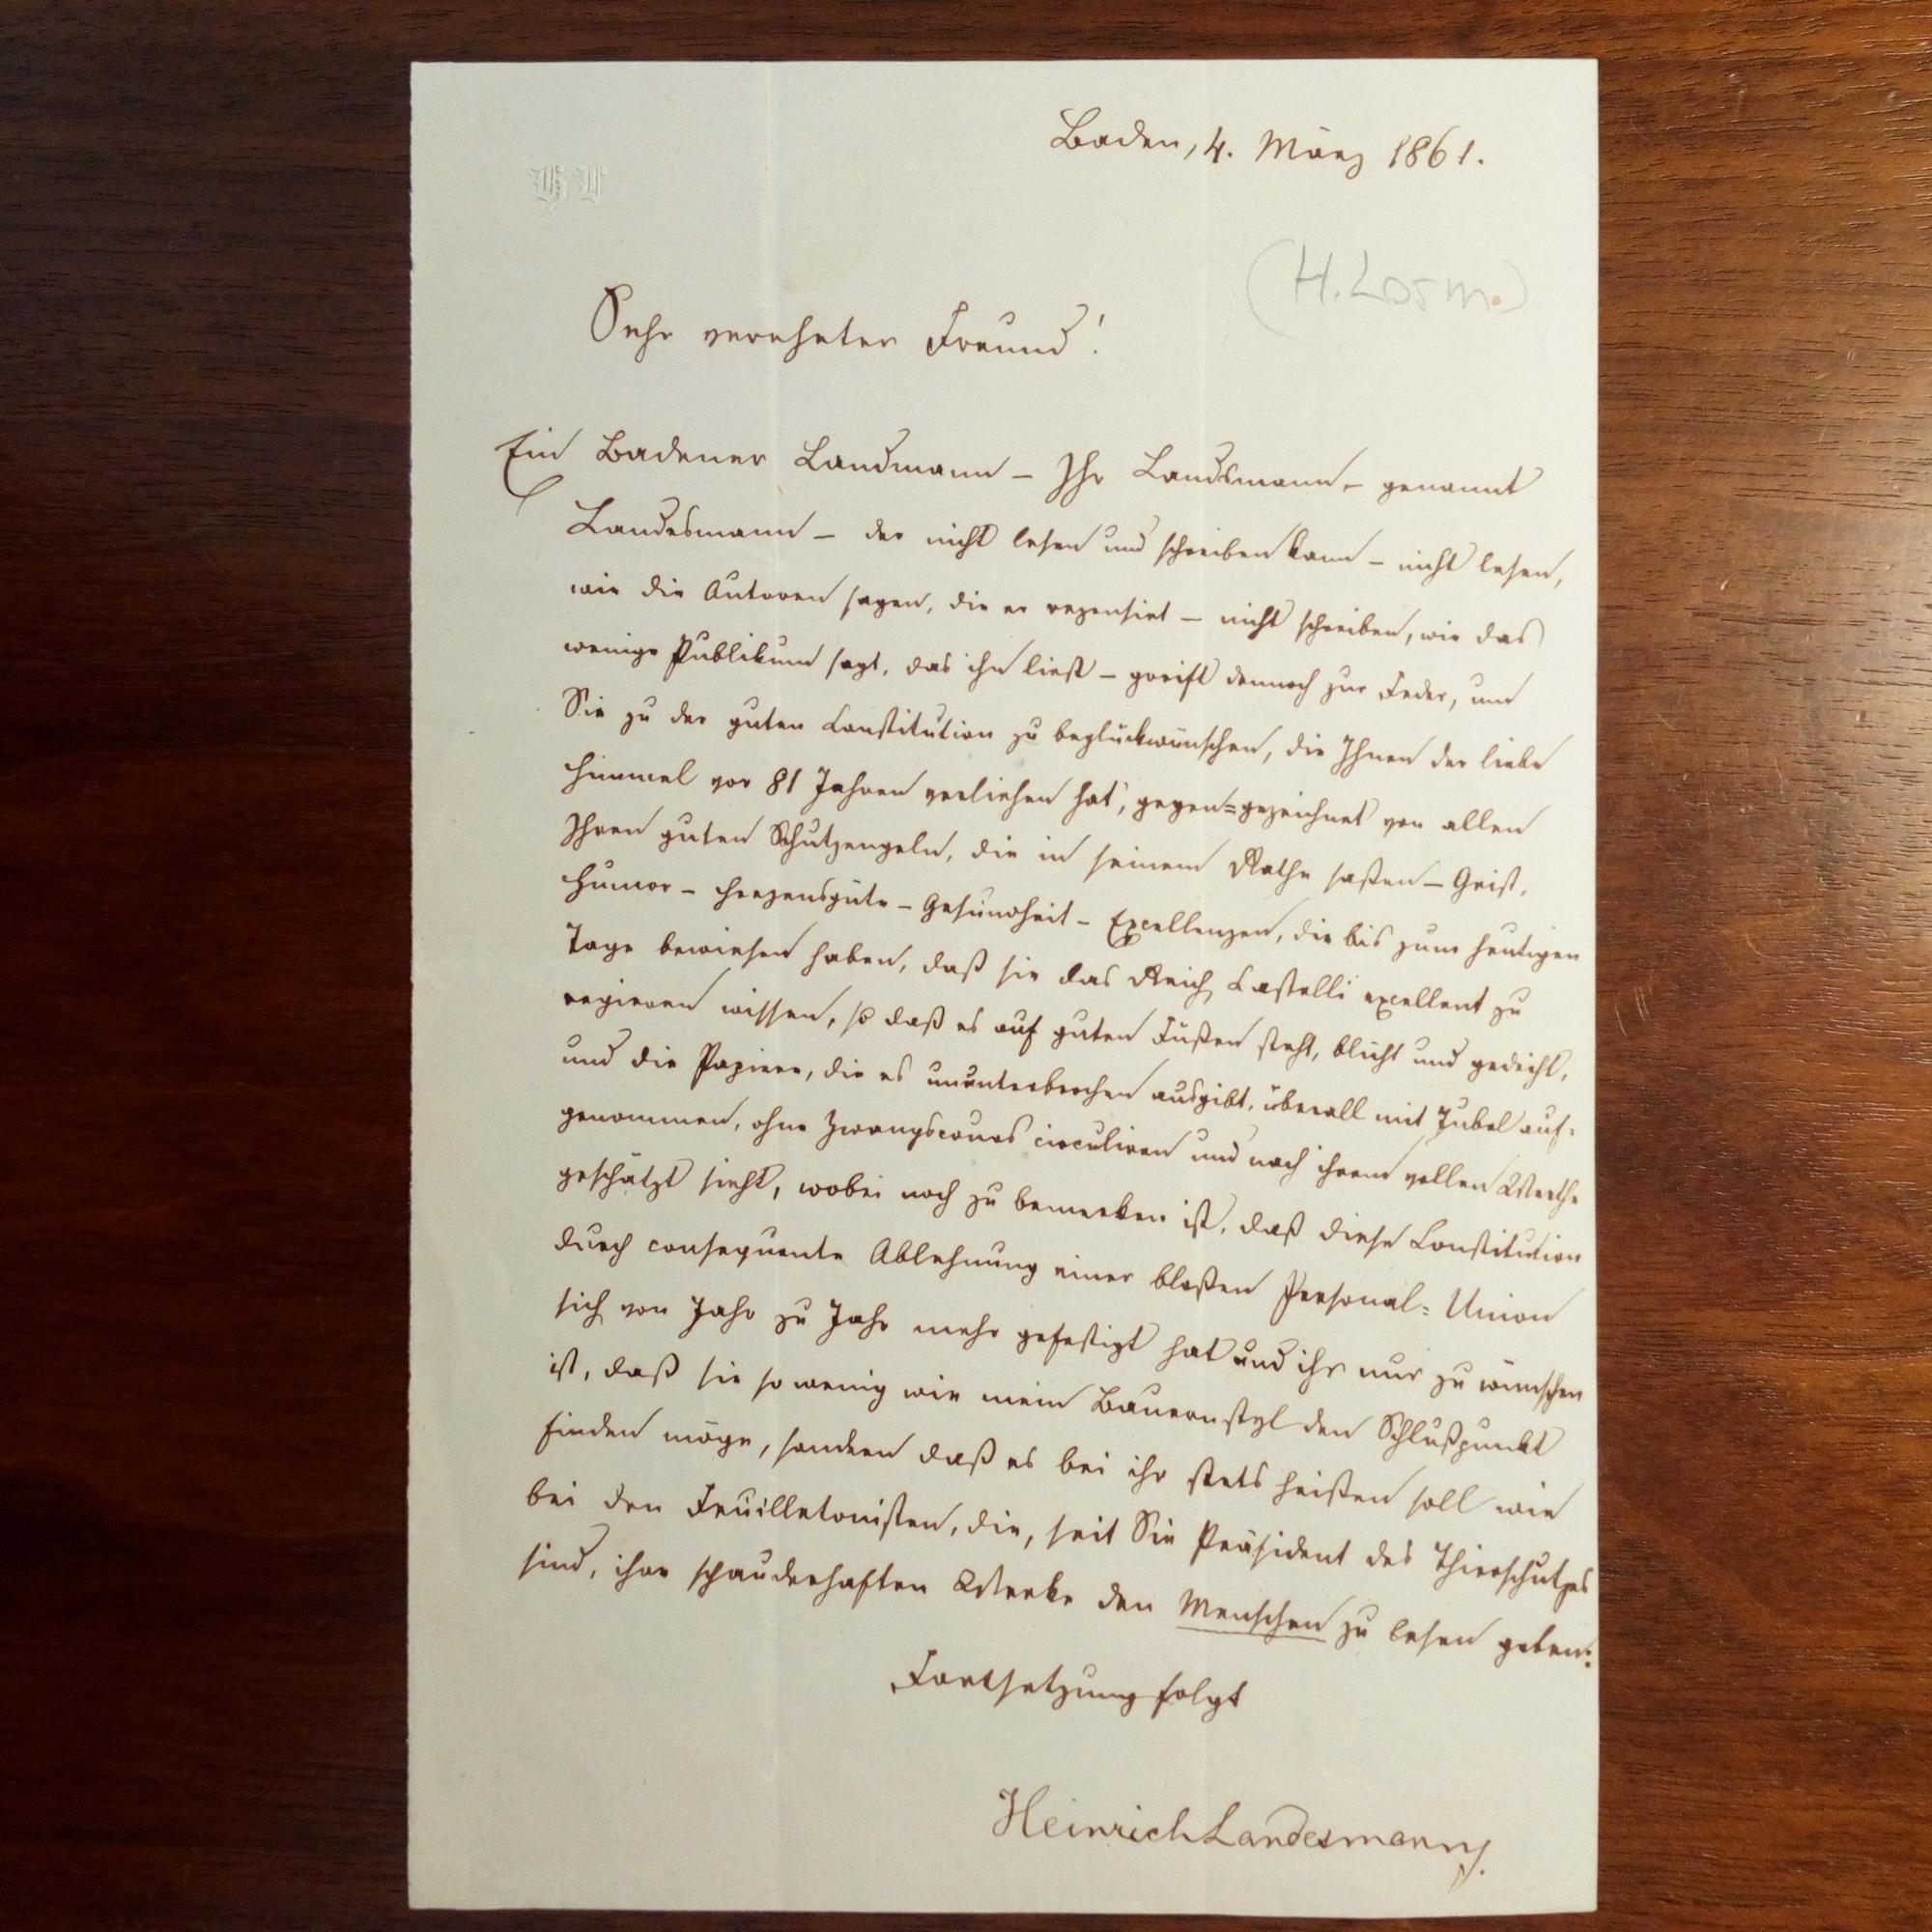 Baden, 4. März 1861.
(H. Lorm.)
Sehr verehrter Freund!
Ein Badener Landmann – Ihr Landsmann – genannt
Landesmann – der nicht lesen und schreiben kann – nicht lesen,
wie die Autoren sagen, die er rezensirt – nicht schreiben, wie das
wenige Publikum sagt, das ihn liest – greift dennoch zur Feder, um
Sie zu der guten Constitution zu beglückwünschen, die Ihnen der liebe
Himmel vor 81 Jahren verliehen hat, gegen=gezeichnet von allen
Ihren guten Schutzengeln, die in seinem Rathe saßen – Geist,
Humor – Herzensgüte – Gesundheit – Excellenzen, die bis zum heutigen
Tage bewiesen haben, daß sie das Reich Castelli excellent zu
regieren wissen, so daß es auf guten Füßen steht, blüht und gedeiht,
und die Papiere, die es ununterbrochen ausgibt, überall mit Jubel auf=
genommen, ohne Zwangscours circuliren und nach ihrem vollen Werthe
geschätzt sieht, wobei noch zu bemerken ist, daß diese Constitution
durch consequente Ablehnung einer bloßen Personal=Union
sich von Jahr zu Jahr mehr gefestigt hat und ihr nur zu wünschen
ist, daß sie so wenig wie mein Bauernstyl den Schlußpunkt
finden möge, sondern daß es bei ihr stets heißen soll wie
bei den Feuilletonisten, die, seit Sie Präsident des Thierschutzes
sind, ihre schauderhaften Werke den Menschen zu lesen geben:
Fortsetzung folgt
Heinrich Landesmann